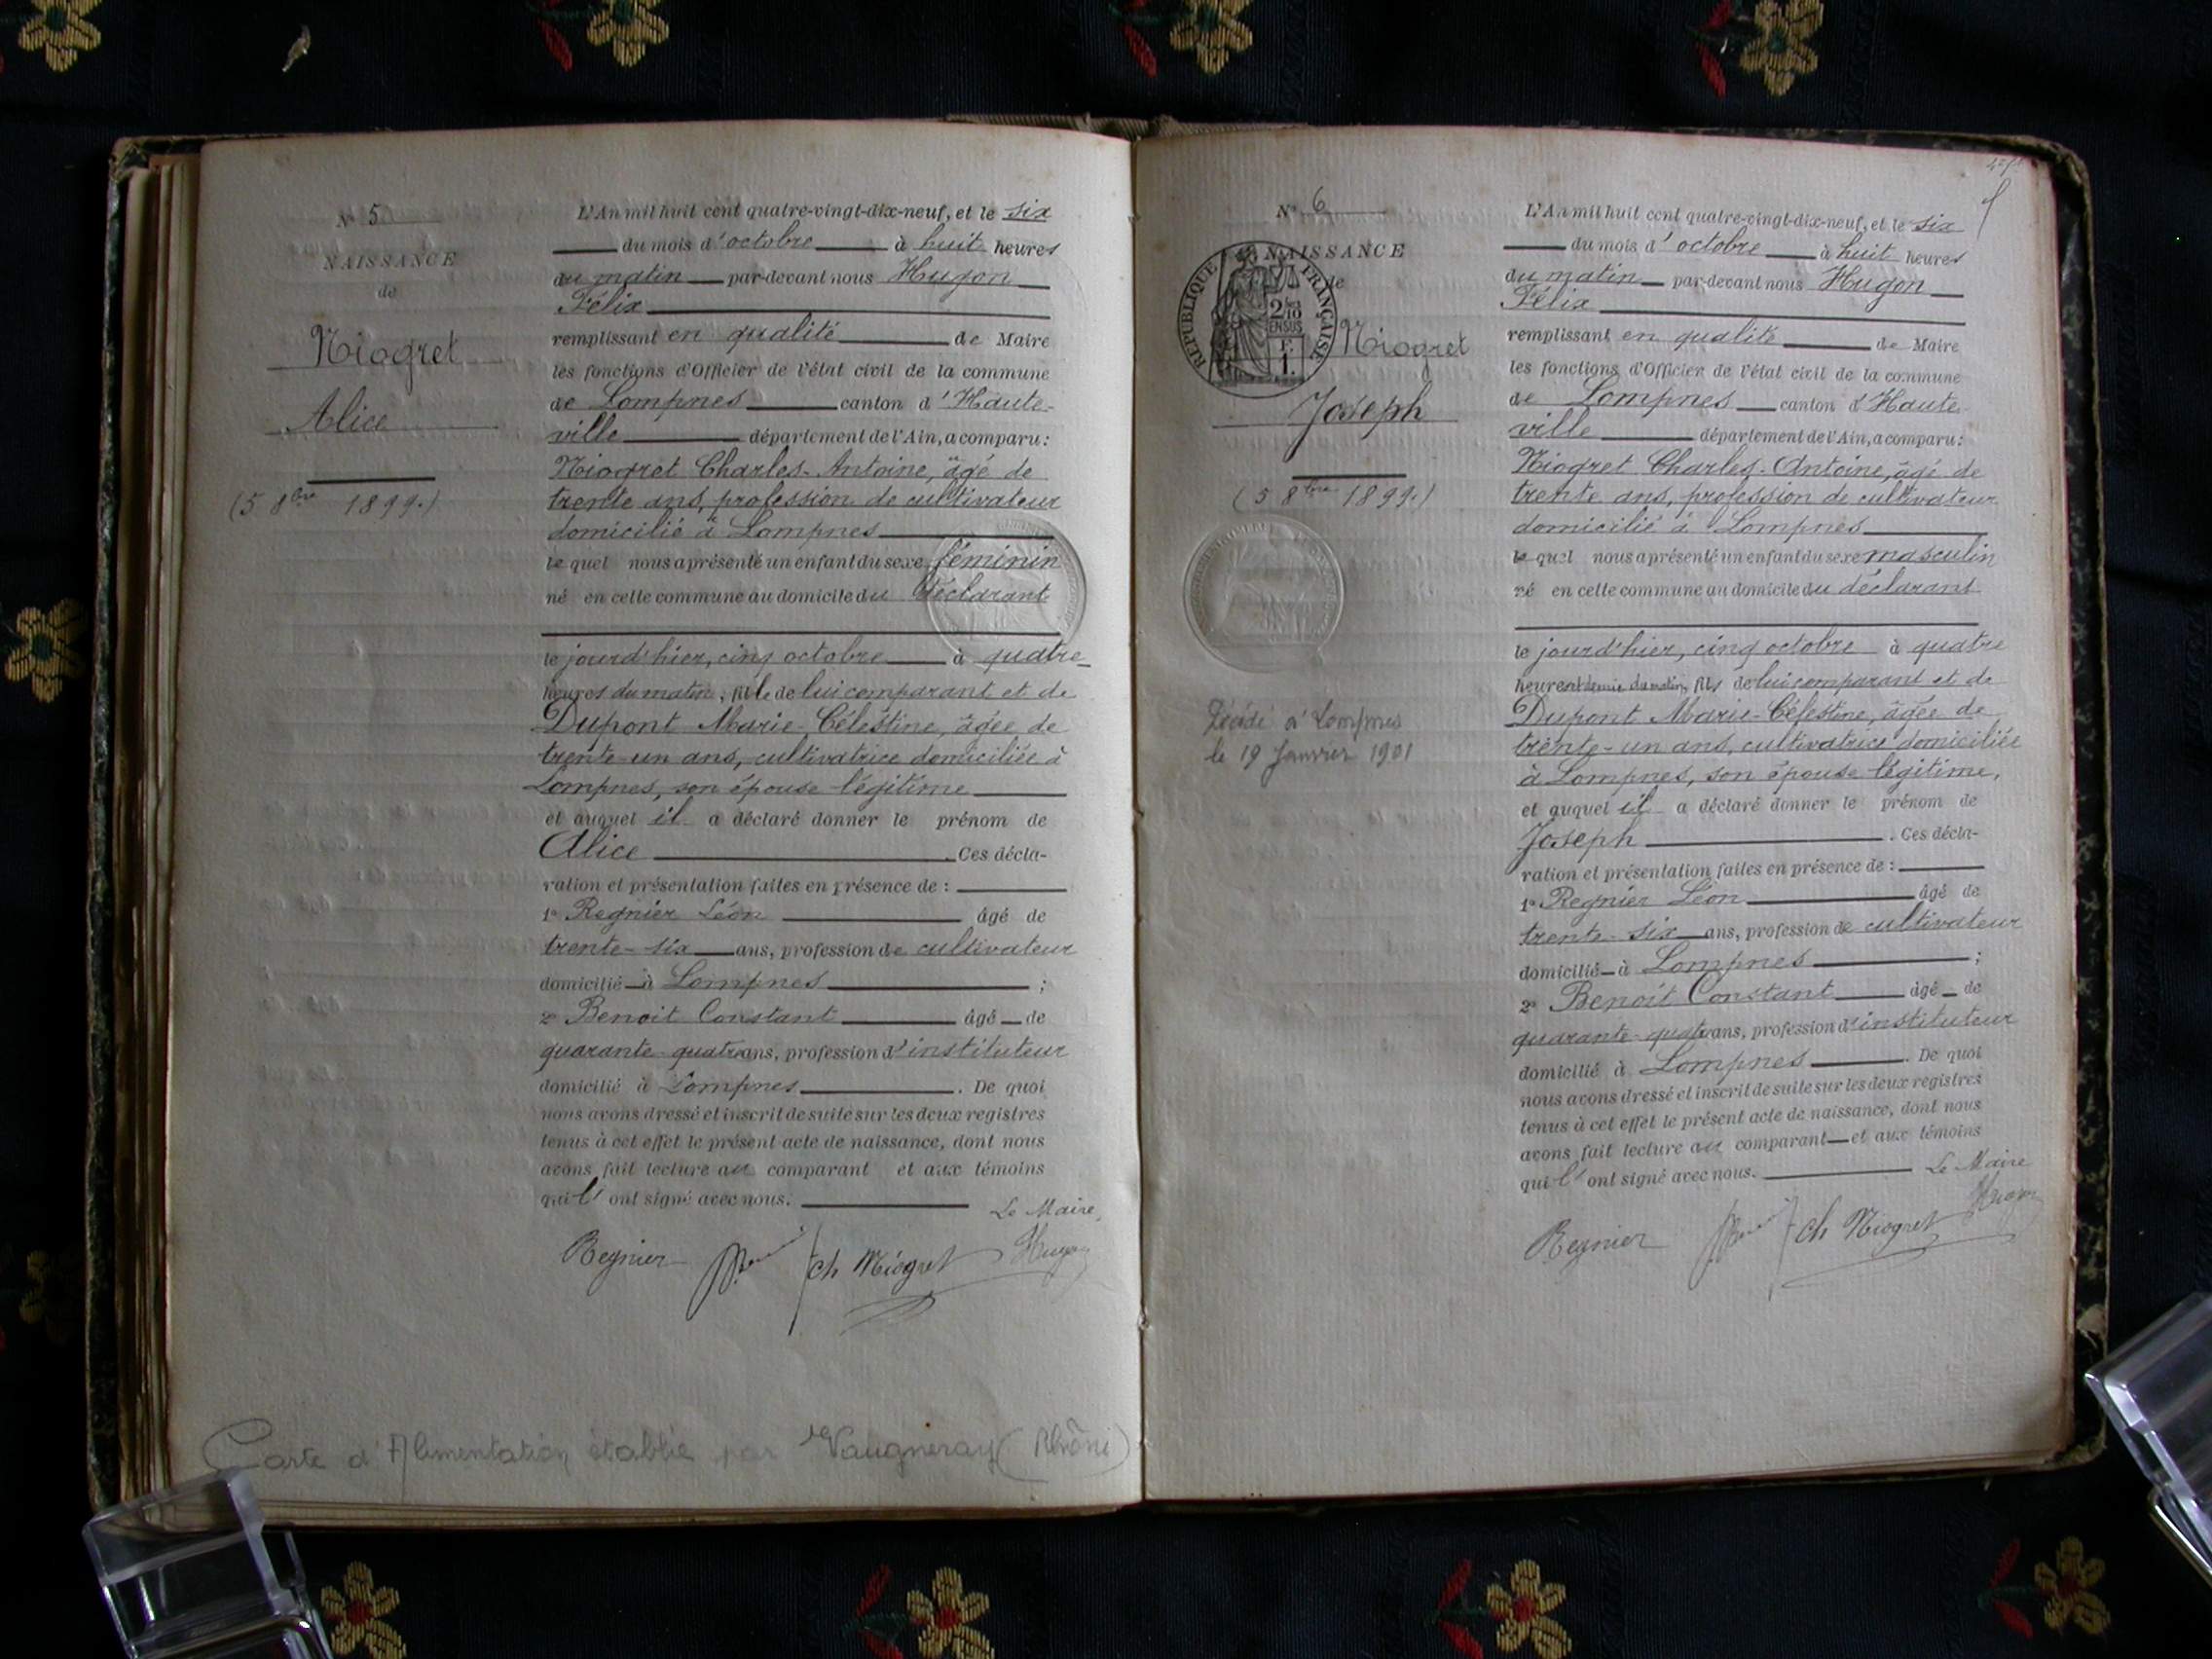 N° 5
NAISSANCE
de
Niogret
Alice
(5 8bre 1899.)
L'An mil huit cent quatre-vingt-dix-neuf, et le six
du mois d'octobre à huit heures
du matin par-devant nous Hugon
Félix
remplissant en qualité de Maire
les fonctions d'Officier de l'état civil de la commune
de Lompnes canton d'Haute-
ville département de l'Ain, a comparu :
Niogret Charles-Antoine, âgé de
trente ans, profession de cultivateur
domicilié à Lompnes
le quel nous a présenté un enfant du sexe féminin
né en cette commune au domicile du déclarant
le jourd'hier, cinq octobre à quatre
heures du matin, fille de lui comparant et de
Dupont Marie-Célestine, âgée de
trente-un ans, cultivatrice domiciliée à
Lompnes, son épouse légitime
et auquel il a déclaré donner le prénom de
Alice . Ces décla-
ration et présentation faites en présence de :
1° Regnier Léon âgé de
trente-six ans, profession de cultivateur
domicilié à Lompnes ;
2° Benoit Constant âgé de
quarante-quatre ans, profession d'instituteur
domicilié à Lompnes . De quoi
nous avons dressé et inscrit de suite sur les deux registres
tenus à cet effet le présent acte de naissance, dont nous
avons fait lecture au comparant et aux témoins
qui l'ont signé avec nous.
Le Maire,
Regnier Ch Niogret Hugon
Carte d'Alimentation établie par Vaugneray (Rhône)
N° 6
NAISSANCE
de
RÉPUBLIQUE FRANÇAISE
2/10
EN SUS
F.
1.
Niogret
Joseph
(5 8bre 1899.)
Décédé à Lompnes
le 19 Janvier 1901
L'An mil huit cent quatre-vingt-dix-neuf, et le six
du mois d'octobre à huit heures
du matin par-devant nous Hugon
Félix
remplissant en qualité de Maire
les fonctions d'Officier de l'état civil de la commune
de Lompnes canton d'Haute-
ville département de l'Ain, a comparu :
Niogret Charles-Antoine, âgé de
trente ans, profession de cultivateur
domicilié à Lompnes
le quel nous a présenté un enfant du sexe masculin
né en cette commune au domicile du déclarant
le jourd'hier, cinq octobre à quatre
heures et demie du matin, fils de lui comparant et de
Dupont Marie-Célestine, âgée de
trente-un ans, cultivatrice domiciliée
à Lompnes, son épouse légitime,
et auquel il a déclaré donner le prénom de
Joseph . Ces décla-
ration et présentation faites en présence de :
1° Regnier Léon âgé de
trente-six ans, profession de cultivateur
domicilié à Lompnes ;
2° Benoit Constant âgé de
quarante-quatre ans, profession d'instituteur
domicilié à Lompnes . De quoi
nous avons dressé et inscrit de suite sur les deux registres
tenus à cet effet le présent acte de naissance, dont nous
avons fait lecture au comparant et aux témoins
qui l'ont signé avec nous.
Le Maire
Regnier Ch Niogret Hugon